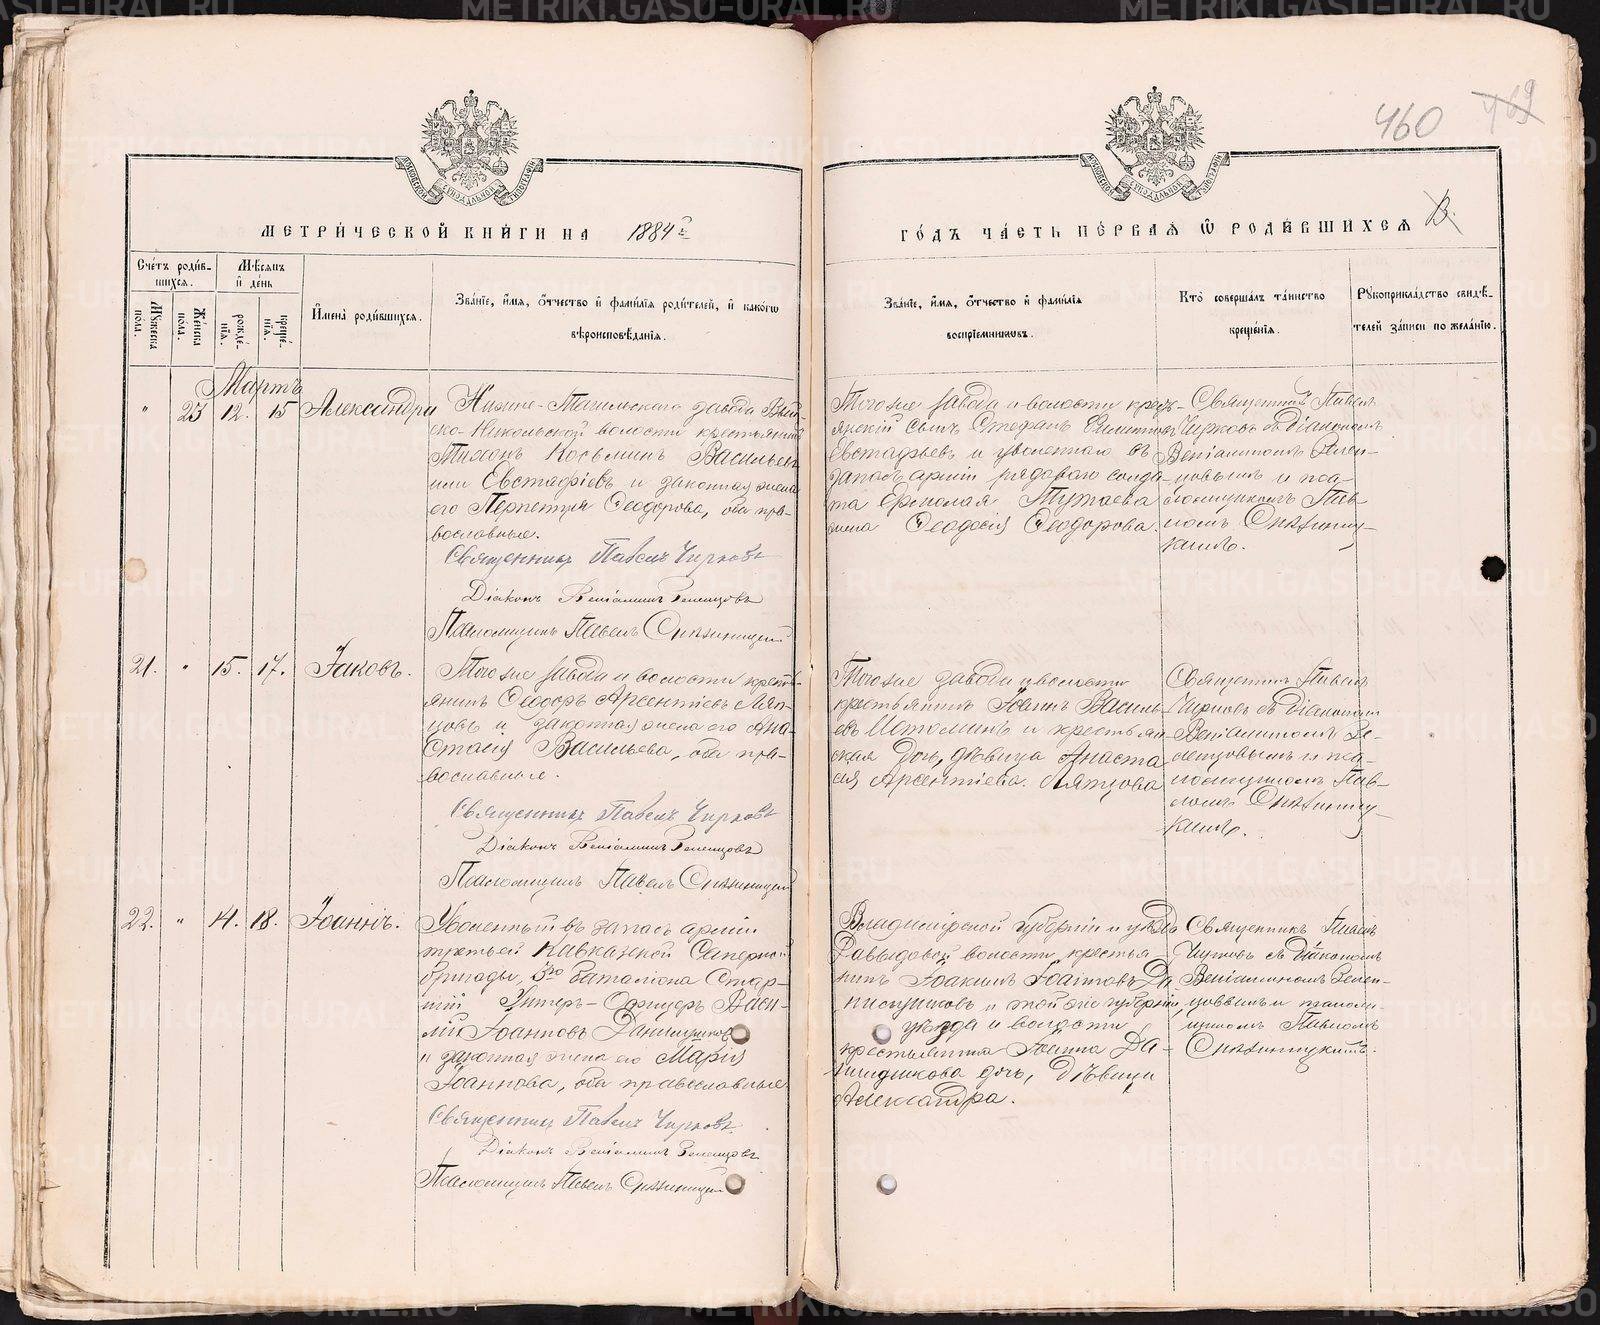 460
463
МЕТРИ́ЧЕСКОЙ КНИ́ГИ НА 1884 г.
ГО́ДЪ ЧА́СТЬ ПЕ́РВАЯ Ѿ РОДИ́ВШИХСЯ
Сче́тъ роди́в-
шихся.
Мꙋжеска по́ла.
Же́нска по́ла.
Мѣсяцъ
и де́нь
рожде́-
нїя.
креще́-
нїя.
И҆мена̀ роди́вшихся.
Зва́нїе, и҆́мя, ѻ҆́тчество и҆ фами́лїѧ роди́телей, и҆ како́гѡ
вѣроисповѣ́данїя.
Зва́нїе, и҆́мя, ѻ҆́тчество и҆ фами́лїѧ
воспрїе́мниковъ.
Кто̀ соверша́лъ та́инство
креще́нїя.
Рꙋкоприкла́дство свидѣ́-
телей за́писи по жела́нїю.
Мартъ
"
23
12.
15
Александра
Нижне-Тагильскаго завода Вый-
ско-Никольской волости крестьянинъ
Тихонъ Косьминъ Васильевъ
или Евстафіевъ и законная жена
его Перпетуя Ѳеодорова, оба пра-
вославные.
Священникъ Павелъ Чирковъ
Діаконъ Веніаминъ Зеленцовъ
Псаломщикъ Павелъ
Тогоже завода и волости кресть-
янскій сынъ Стефанъ
Евстафьевъ и уволеннаго въ
запасъ арміи рядоваго солда-
та Ермолая Тутаева
жена Ѳеодосія Ѳеодорова.
Священникъ Павелъ
Чирковъ съ Діакономъ
Веніаминомъ Зелен-
цовымъ и пса-
ломщикомъ Пав-
ломъ
кимъ.
21.
"
15.
17.
Іаковъ.
Тогоже завода и волости кресть-
янинъ Ѳеодоръ Арсентіевъ Ляп-
цовъ и законная жена его Ана-
стасія Васильева, оба пра-
вославные.
Священникъ Павелъ Чирковъ
Діаконъ Веніаминъ Зеленцовъ
Псаломщикъ Павелъ
Тогоже завода и волости
крестьянинъ Іоаннъ Василь-
евъ Истоминъ и крестьян-
ская дочь, дѣвица Анаста-
сія Арсентіева Ляпцова
Священникъ Павелъ
Чирковъ съ Діакономъ
Веніаминомъ Зе-
ленцовымъ и пса-
ломщикомъ Пав-
ломъ
кимъ.
22.
"
14.
18.
Іоаннъ.
Уволенный въ запасъ арміи
третьей Кавказской Саперной
бригады, 3го баталіона Стар-
шій Унтеръ-Офицеръ Васи-
лій Іоанновъ Данишиковъ
и законная жена его Марія
Іоаннова, оба православные
Священникъ Павелъ Чирковъ.
Діаконъ Веніаминъ Зеленцовъ
Псаломщикъ Павелъ
Владимірской губерніи и уѣзда
Давыдовой волости, крестья-
нинъ Іоакимъ Іоанновъ Да-
нишиковъ и той же губерніи,
уѣзда и волости
крестьянина Іоанна Да-
нишикова дочь, дѣвица
Александра.
Священникъ Павелъ
Чирковъ съ Діакономъ
Веніаминомъ Зелен-
цовымъ и псалом-
щикомъ Павломъ